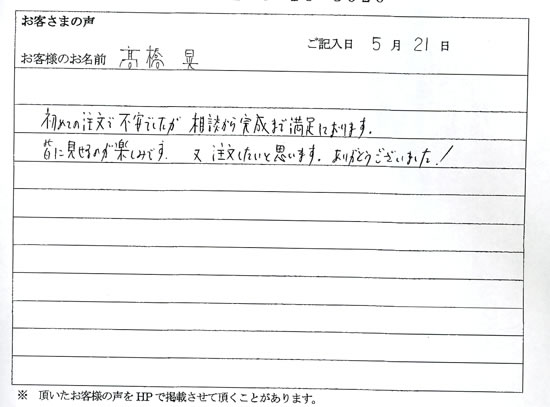 お客さまの声
ご記入日 5月21日
お客様のお名前 髙橋 晃
初めての注文で不安でしたが 相談から完成まで満足しております。
皆に見せるのが楽しみです。 又 注文したいと思います。ありがとうございました!
※ 頂いたお客様の声をHPで掲載させて頂くことがあります。